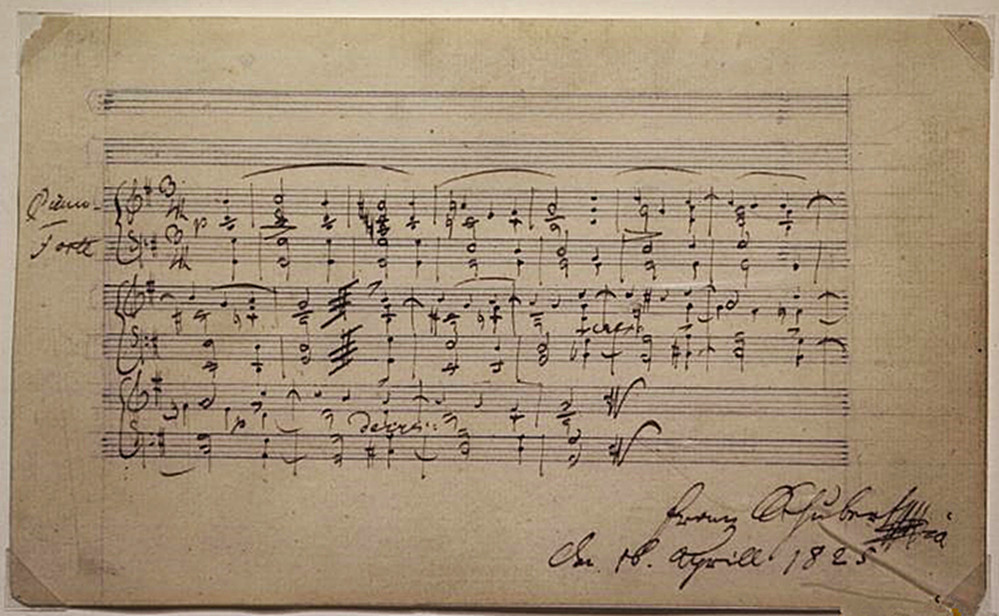 Piano-
Forte
p
cresc
p decres:
Franz Schubert
Den 16. Aprill 1825